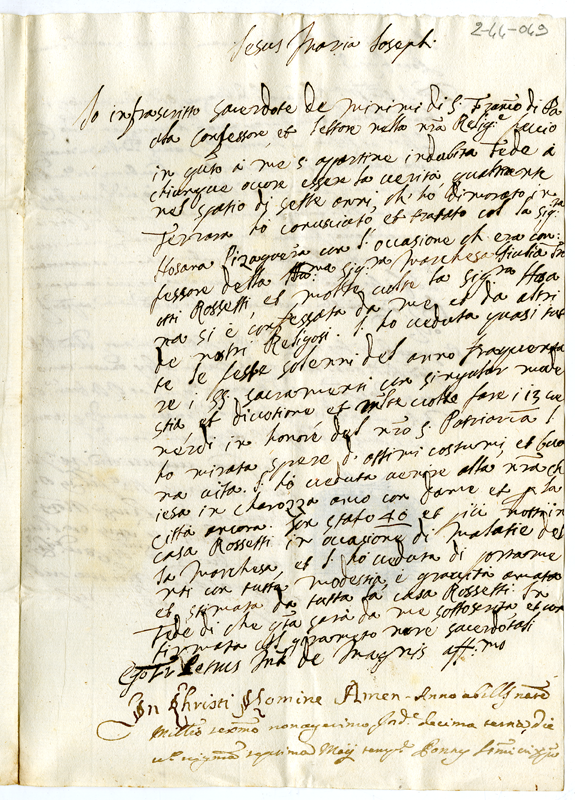 2-44-049
Jesus Maria Joseph
Io infrascritto sacerdote de minimi di S. Franco di Pa
ola confessore et lettore nella nra Relig.e faccio
in qto à me s'apartine indubita fede à
chiunque ocore essere la verità qualmente
nel spatio di sette anni ch' hò dimorato in
Ferrara hò conusciato et tratato col la Sig.ra
Hosana Pizaguera con l' occasione ch' era con=
fessore della Ill.ma Sig.ra Marchesa Giulia
Rossetti, et molte volte la Sig.ra Hosa
na si è confessata da me et da altri
de nostri Religosi. l' hò veduta quasi tut
te le feste solenni del anno frequenta
re i SS. sacramenti con singolar mode
stia et divotione et molte volte fare i 13 ve
nerdi in honore del nro S. Patriarca l'
hò mirata sempre d' ottimi costumi et buo
na vita. l' hò veduta venire alla nra ch
iesa in charozza anco con dame et p la
città ancora. son stato 40 et più
casa Rossetti in occasione di malatie del
la Marchesa, et l' hò veduta di
con tutta modestia e gravità amata
et stimata da tutta la casa Rossetti. In
fede di che qta sarà da me sottoscrita et con
firmata col giuramto more sacerdotali
Ego Fr. Petrus de Magnis aff.mo
In Christi Nomine Amen. Anno ab Ill.s nativ
Millo sexmo nonagesimo, Ind.e decima tertia, die
septima Maij